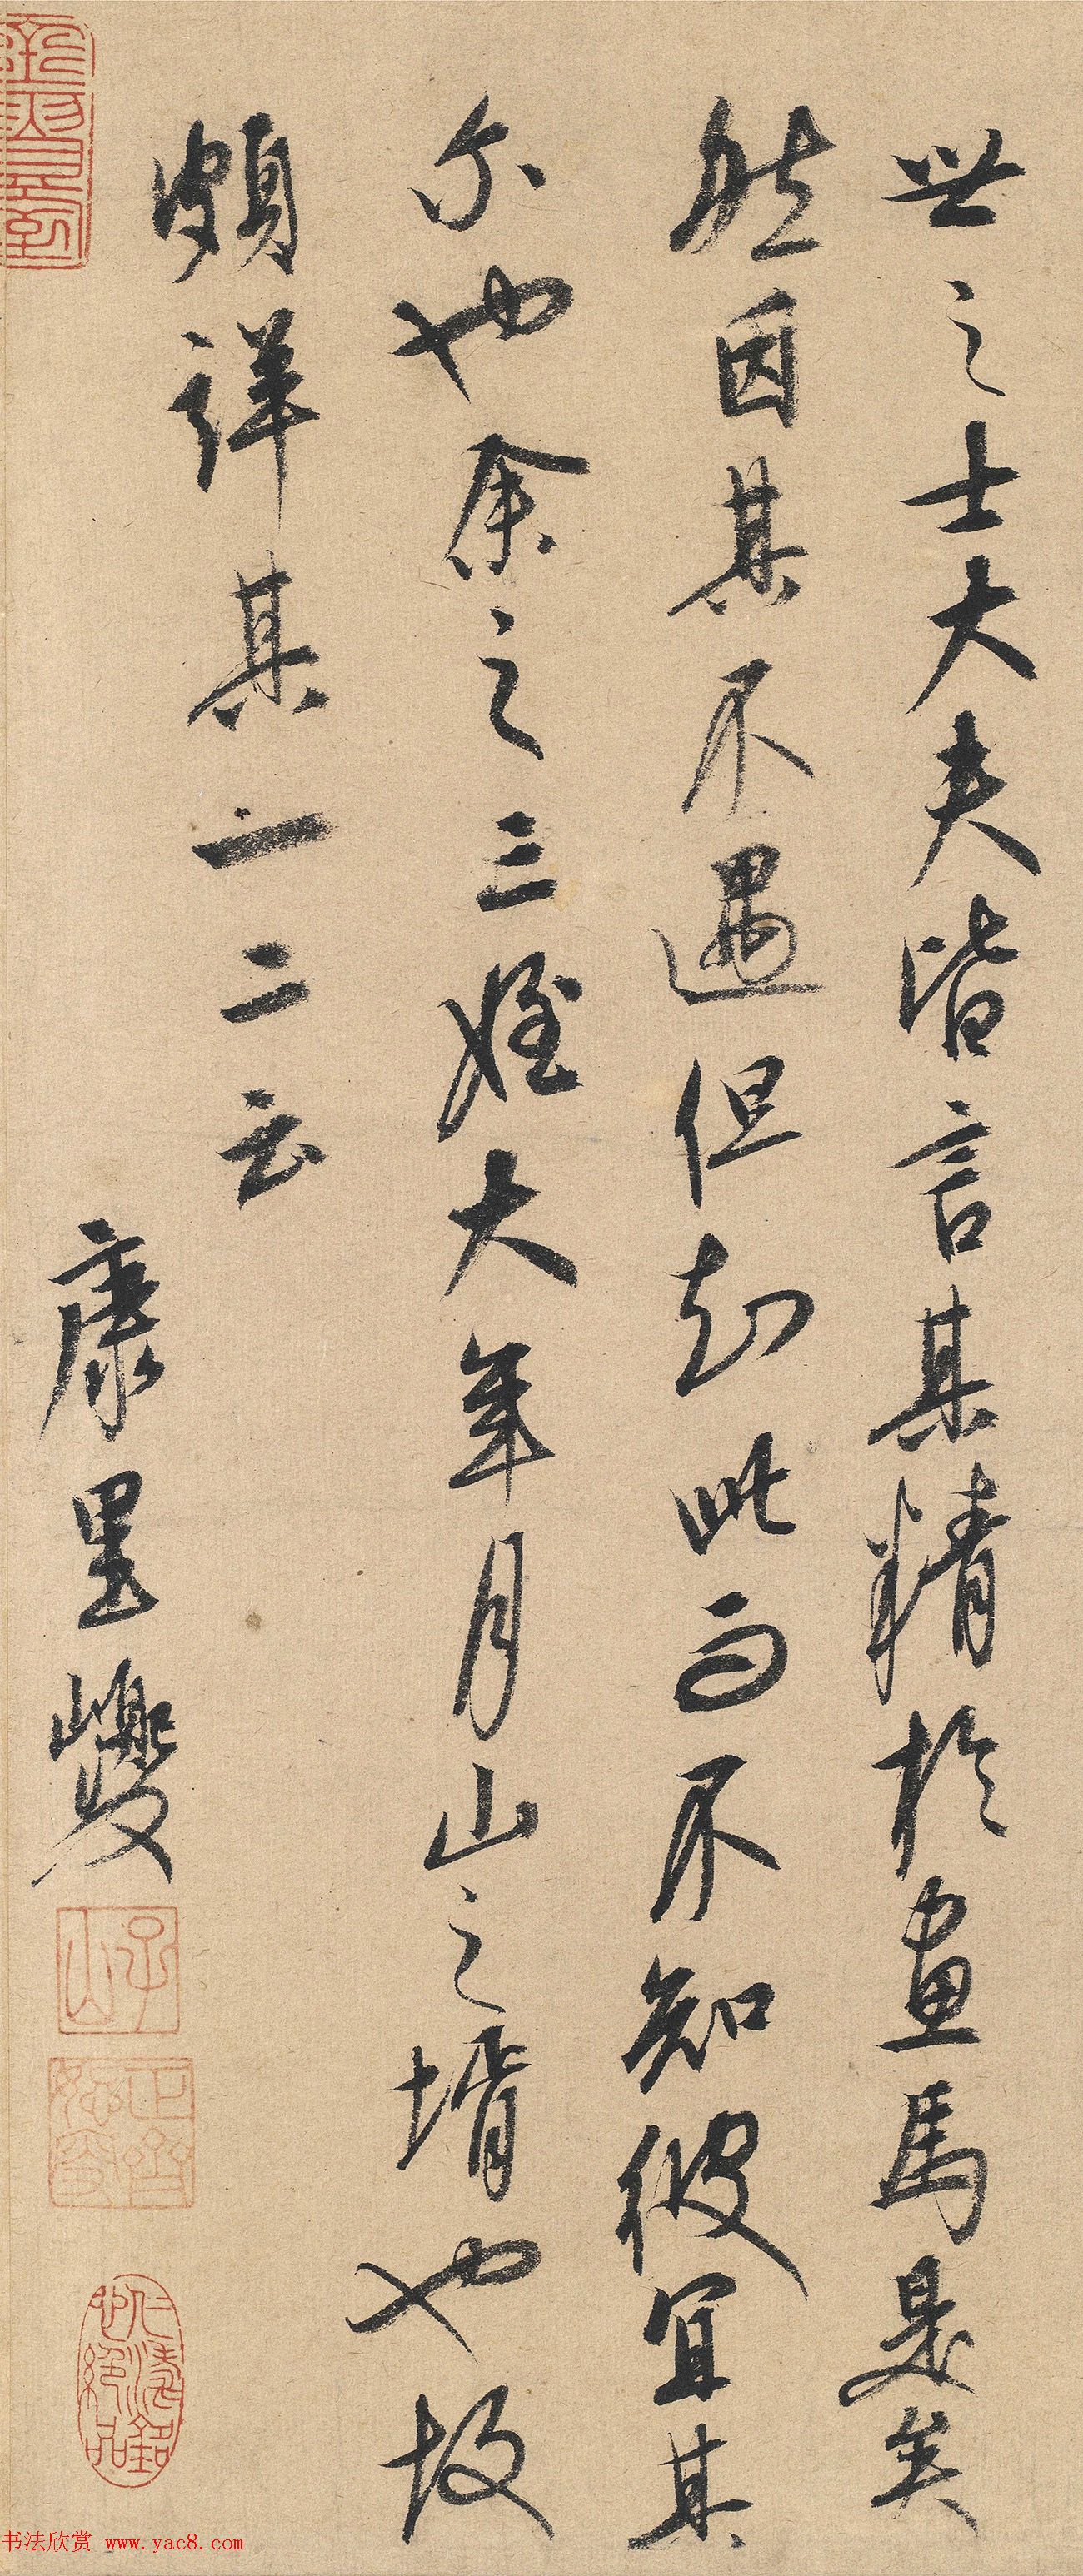 世之士大夫皆言其精於畫馬是矣
然因其不遇但知此而不知彼宜其
尔也余之三姪大年月山之壻也故
頗詳其一二云
康里巎
子山
正齋恕叟
仁濤銘心絕品
书法欣赏 www.yac8.com